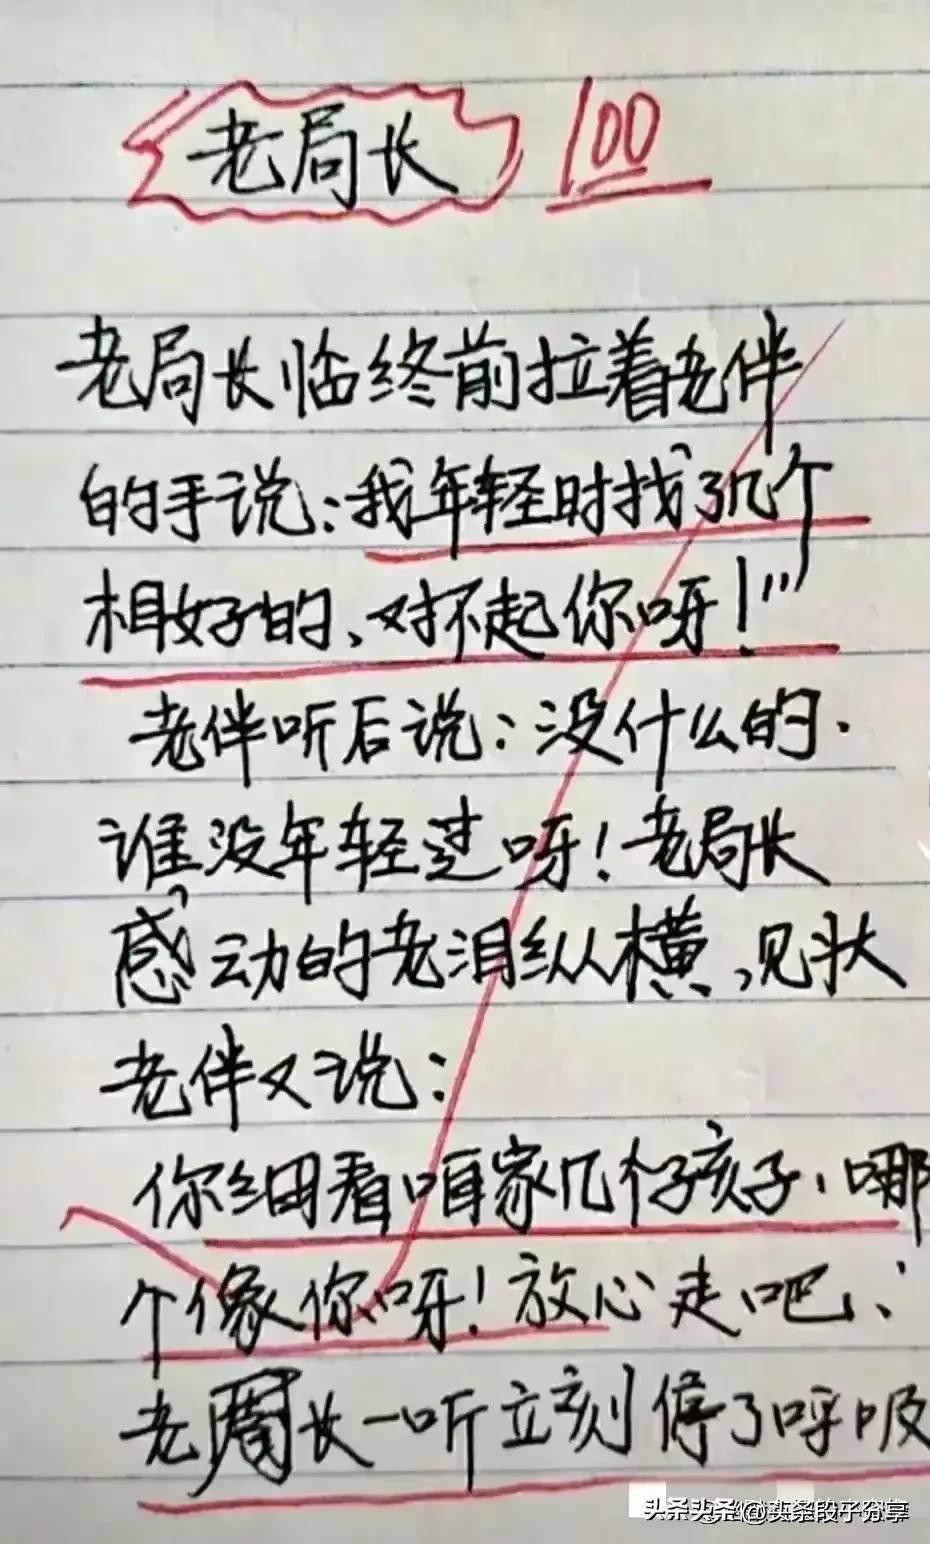 老局长 100
老局长临终前拉着老伴
的手说:我年轻时找了几个
相好的、对不起你呀!"
老伴听后说:没什么的.
谁没年轻过呀!老局长
感动的老泪纵横,见状
老伴又说:
你细看咱家几个孩子、哪
个像你呀!放心走吧、
老局长一听立刻停了呼吸
头条 @头条段子分享